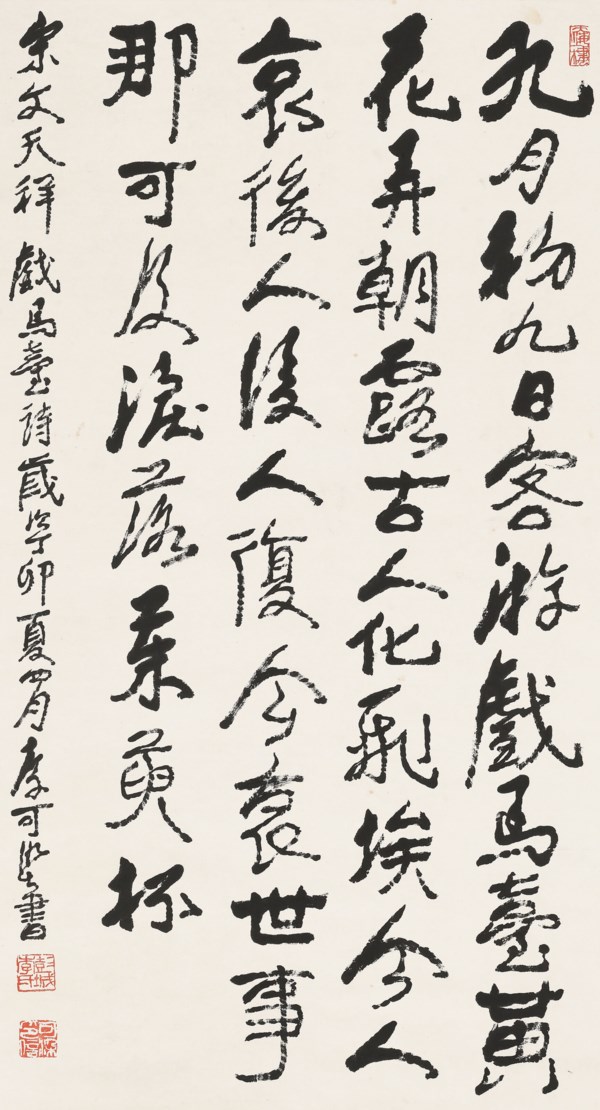 九月初九日客游戲馬臺黃
花弄朝露古人化飛埃今人
哀後人後人復今哀世事
那可及淚落茱萸杯
宋文天祥戲馬臺詩歲次丁卯夏四月李可染書
彭城李氏